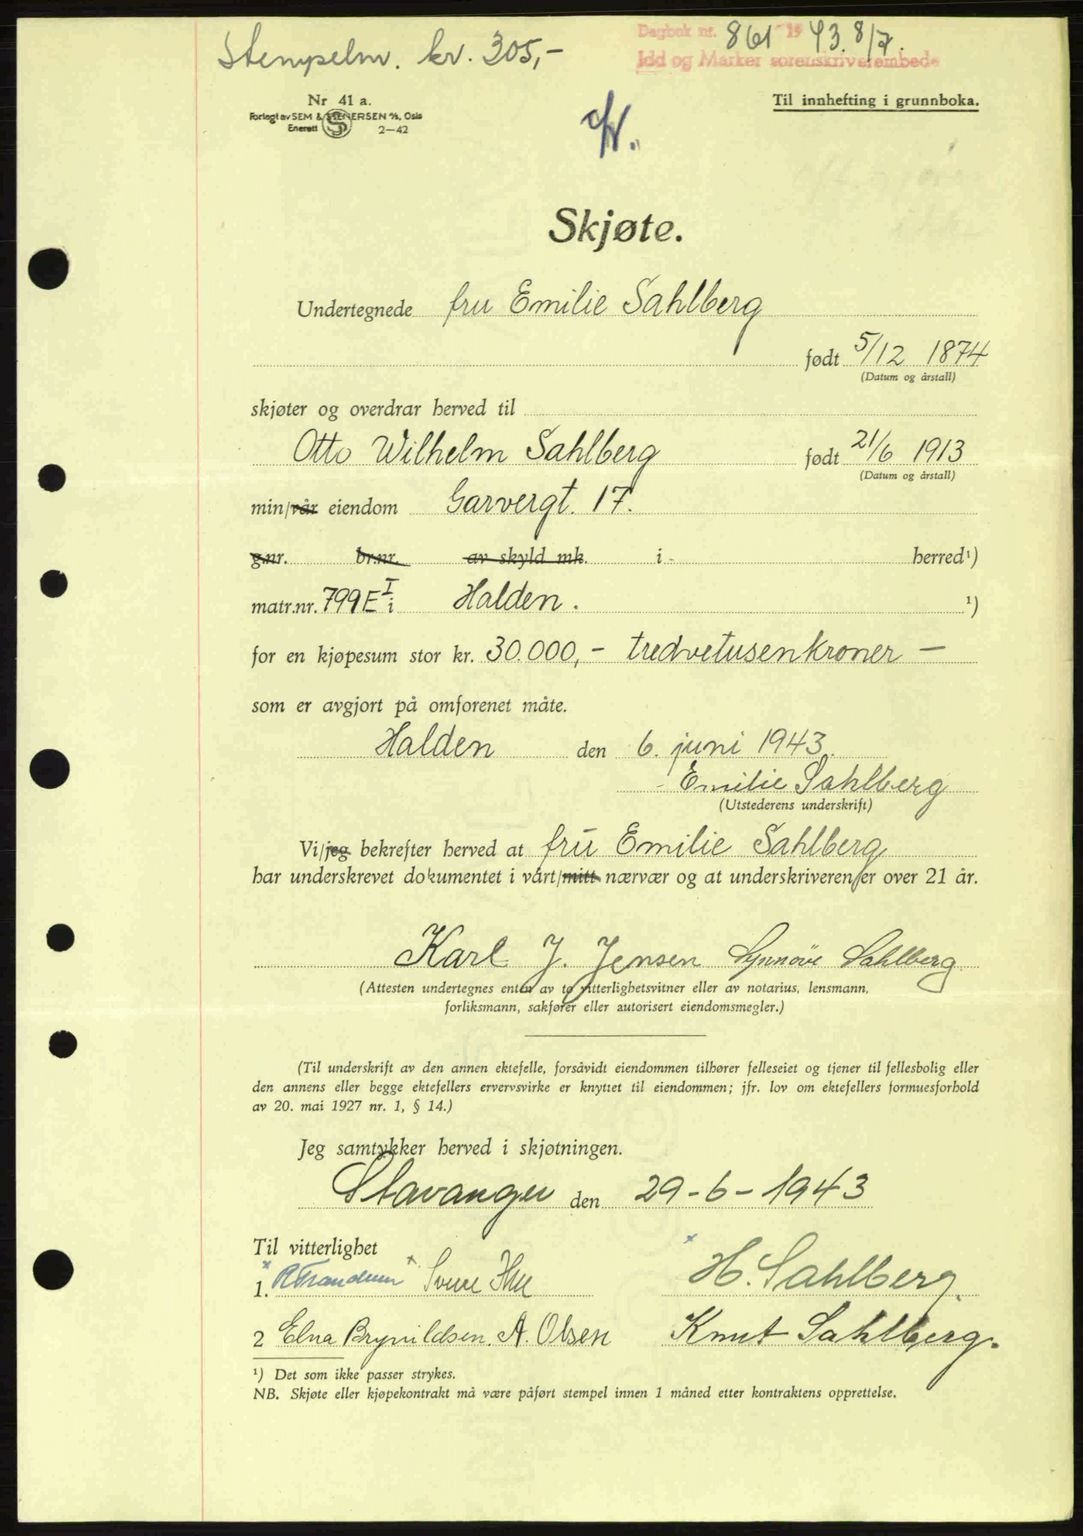 Stempelm. kr. 305,-
Dagbok nr. 861 19 43. 8/7.
Idd og Marker sorenskriverembede
Nr 41 a.
Forlagt av SEM & STENERSEN A/S, Oslo
Enerett 2-42
Til innhefting i grunnboka.
Skjøte.
Undertegnede fru Emilie Sahlberg
født 5/12 1874
(Datum og årstall)
skjøter og overdrar herved til
Otto Wilhelm Sahlberg født 21/6 1913
(Datum og årstall)
min/vår eiendom Garvergt. 17.
g.nr. br.nr. av skyld mk. i - herred¹)
matr.nr. 799 E I i Halden. ¹)
for en kjøpesum stor kr. 30.000,- tredvetusenkroner —
som er avgjort på omforenet måte.
Halden den 6. juni 1943.
Emilie Sahlberg
(Utstederens underskrift)
Vi/jeg bekrefter herved at fru Emilie Sahlberg
har underskrevet dokumentet i vårt/mitt nærvær og at underskriveren er over 21 år.
Karl J. Jensen Synnöve Sahlberg
(Attesten undertegnes enten av to vitterlighetsvitner eller av notarius, lensmann,
forliksmann, sakfører eller autorisert eiendomsmegler.)
(Til underskrift av den annen ektefelle, forsåvidt eiendommen tilhører felleseiet og tjener til fellesbolig eller
den annens eller begge ektefellers ervervsvirke er knyttet til eiendommen; jfr. lov om ektefellers formuesforhold
av 20. mai 1927 nr. 1, § 14.)
Jeg samtykker herved i skjøtningen.
Stavanger den 29-6-1943
Til vitterlighet
1. H. Sahlberg.
2 Elna Brynildsen. A. Olsen Knut Sahlberg.
¹) Det som ikke passer strykes.
NB. Skjøte eller kjøpekontrakt må være påført stempel innen 1 måned etter kontraktens opprettelse.